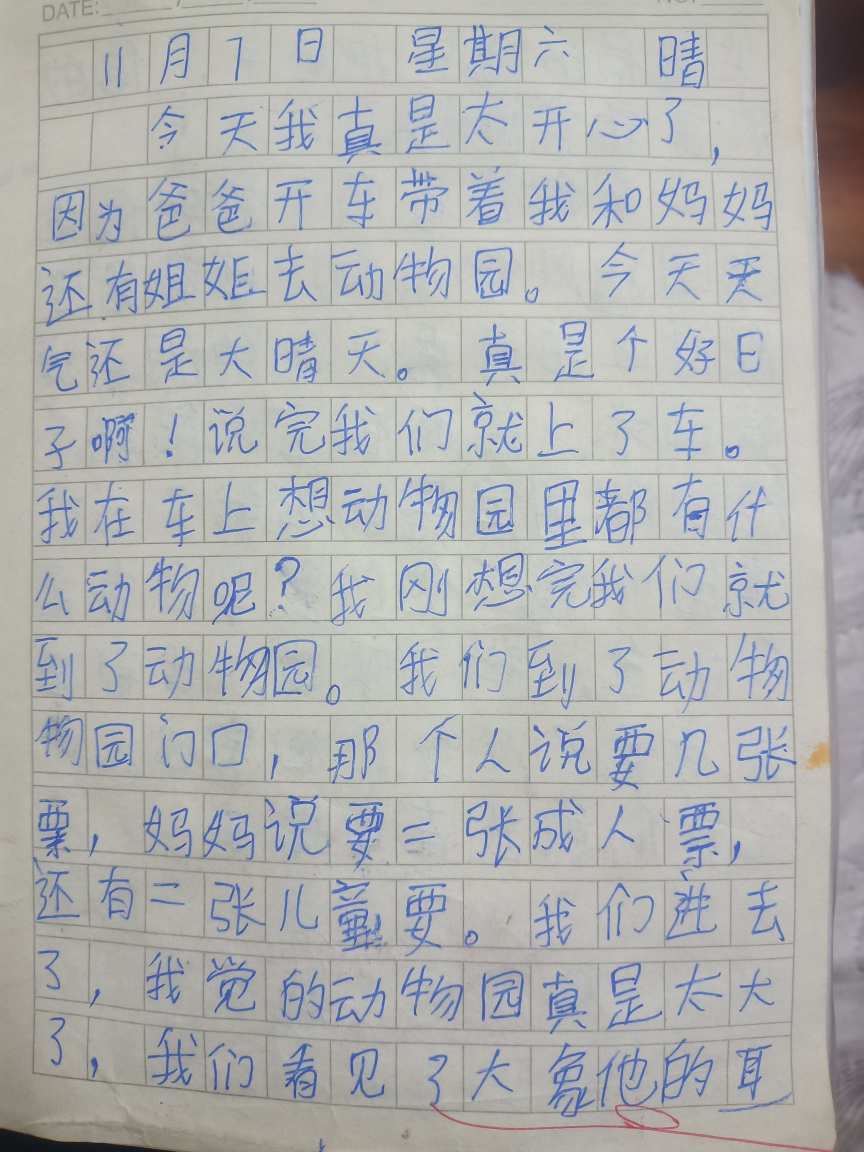 DATE:
11月7日 星期六 晴
今天我真是太开心了，
因为爸爸开车带着我和妈妈
还有姐姐去动物园。今天天
气还是大晴天。真是个好日
子啊！说完我们就上了车。
我在车上想动物园里都有什
么动物呢？我刚想完我们就
到了动物园。我们到了动物
物园门口，那个人说要几张
票，妈妈说要二张成人票，
还有二张儿童要。我们进去
了，我觉的动物园真是太大
了，我们看见了大象他的耳